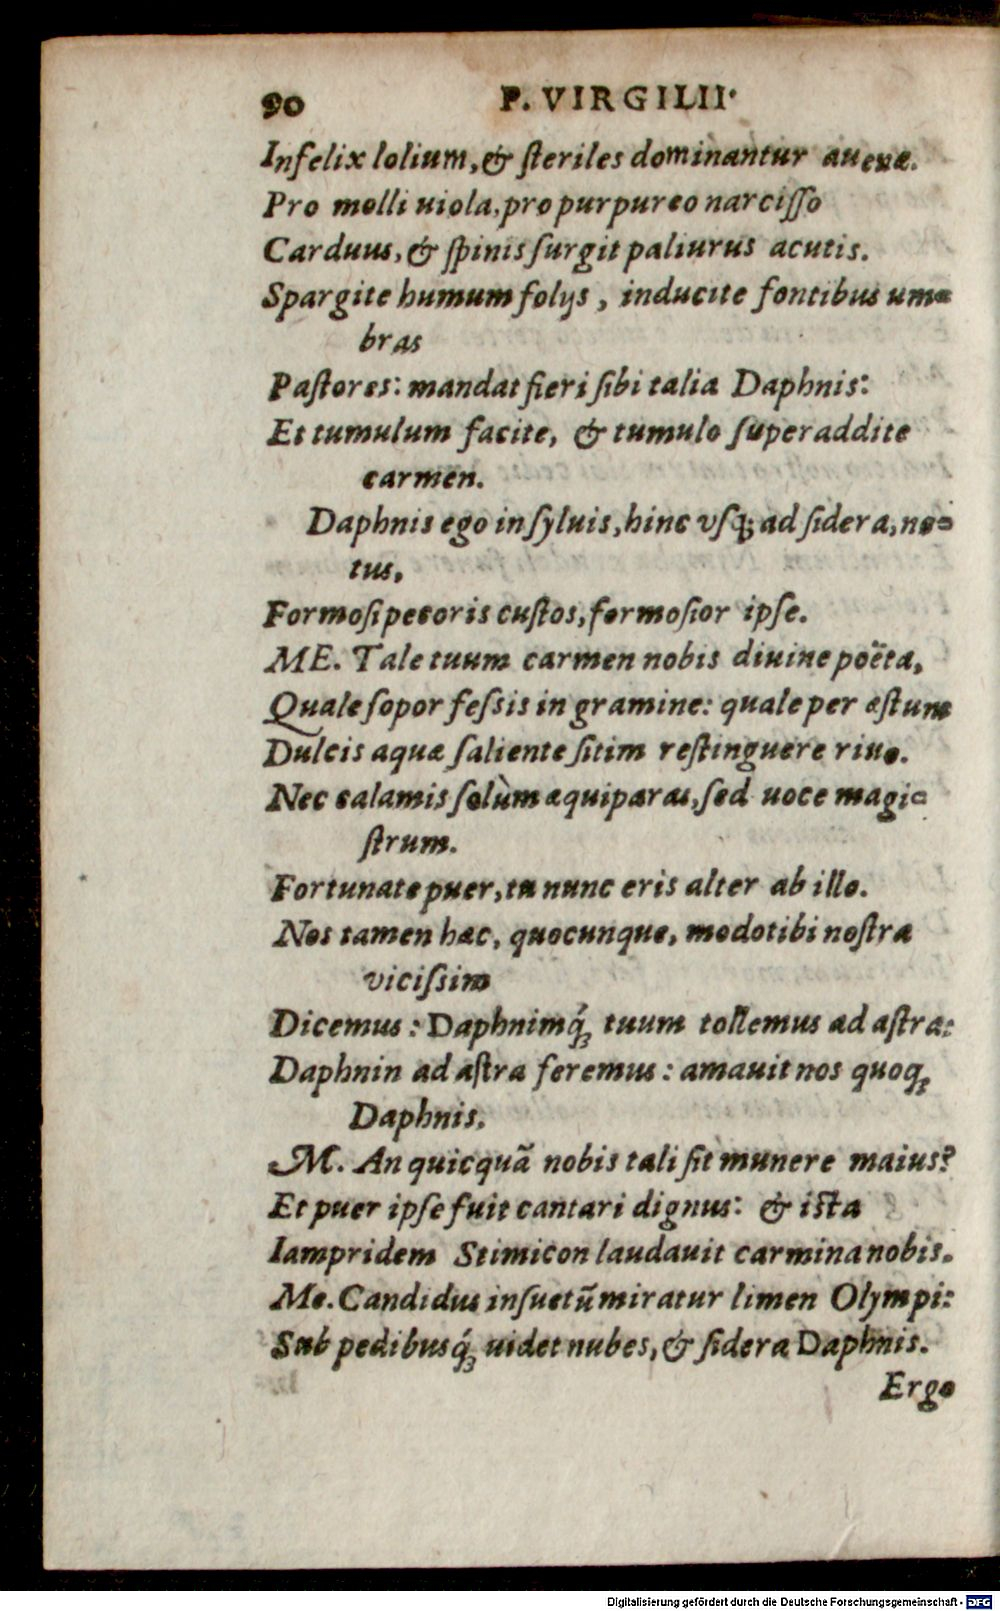 90 P. VIRGILII.
Infelix lolium, & ſteriles dominantur auenæ.
Pro molli uiola, pro purpureo narciſſo
Carduus, & ſpinis ſurgit paliurus acutis.
Spargite humum folijs, inducite fontibus um-
bras
Paſtores: mandat fieri ſibi talia Daphnis:
Et tumulum facite, & tumulo ſuperaddite
carmen.
Daphnis ego in ſyluis, hinc vſq; ad ſidera, no-
tus,
Formoſi pecoris cuſtos, formoſior ipſe.
ME. Tale tuum carmen nobis diuine poëta,
Quale ſopor feſsis in gramine: quale per æſtum
Dulcis aquæ ſaliente ſitim reſtinguere riuo.
Nec calamis ſolùm æquiparas, ſed uoce magi-
ſtrum.
Fortunate puer, tu nunc eris alter ab illo.
Nos tamen hæc, quocunque, modo tibi noſtra
viciſsim
Dicemus: Daphnimq́; tuum tollemus ad aſtra:
Daphnin ad aſtra feremus: amauit nos quoq;
Daphnis.
M. An quicquã nobis tali ſit munere maius?
Et puer ipſe fuit cantari dignus: & iſta
Iampridem Stimicon laudauit carmina nobis.
Me. Candidus inſuetũ miratur limen Olympi:
Sub pedibusq́; uidet nubes, & ſidera Daphnis.
Ergo
Digitalisierung gefördert durch die Deutsche Forschungsgemeinschaft - DFG